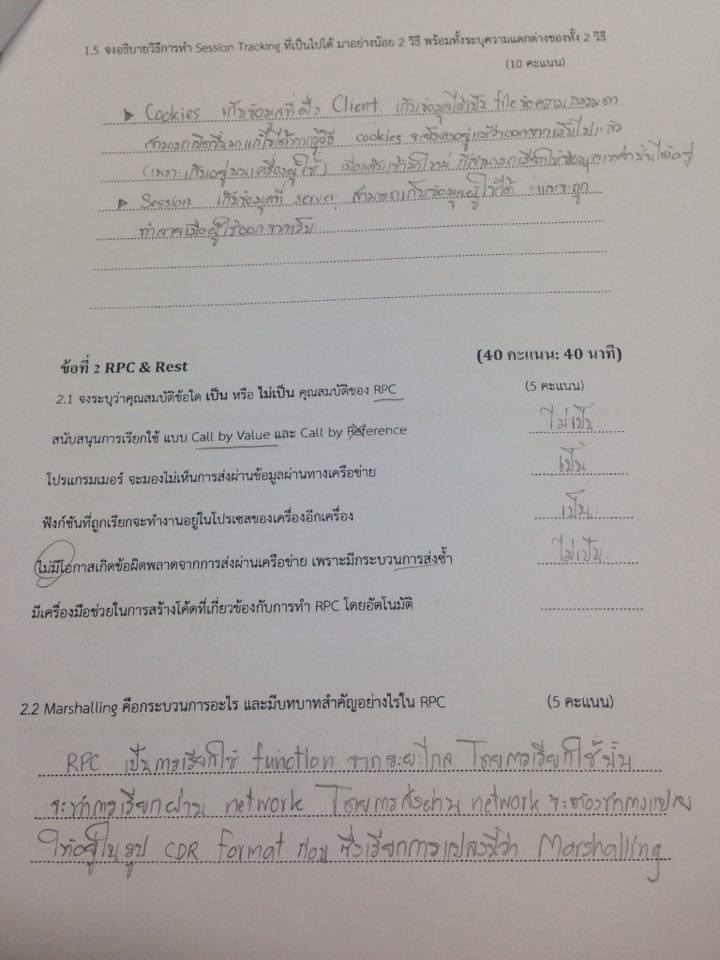 1.5 จงอธิบายวิธีการทำ Session Tracking ที่เป็นไปได้ มาอย่างน้อย 2 วิธี พร้อมทั้งระบุความแตกต่างของทั้ง 2 วิธี
(10 คะแนน)
Cookies เก็บข้อมูลที่ฝั่ง Client เก็บข้อมูลไว้เป็น file ข้อความธรรมดา
สามารถเปิดขึ้นมาแก้ไขได้หากรู้วิธี cookies จะยังคงอยู่แม้ว่าออกจากเว็บไปแล้ว
(เพราะเก็บอยู่บนเครื่องผู้ใช้) เมื่อกลับเข้ามาใหม่ ก็สามารถเรียกใช้ข้อมูลเหล่านั้นได้อยู่
Session เก็บข้อมูลที่ server สามารถเก็บข้อมูลผู้ใช้ได้ และจะถูก
ทำลายเมื่อผู้ใช้ออกจากเว็บ
ข้อที่ 2 RPC & Rest (40 คะแนน: 40 นาที)
2.1 จงระบุว่าคุณสมบัติข้อใด เป็น หรือ ไม่เป็น คุณสมบัติของ RPC (5 คะแนน)
สนับสนุนการเรียกใช้ แบบ Call by Value และ Call by Reference ไม่เป็น
โปรแกรมเมอร์ จะมองไม่เห็นการส่งผ่านข้อมูลผ่านทางเครือข่าย เป็น
ฟังก์ชันที่ถูกเรียกจะทำงานอยู่ในโปรเซสของเครื่องอีกเครื่อง เป็น
ไม่มีโอกาสเกิดข้อผิดพลาดจากการส่งผ่านเครือข่าย เพราะมีกระบวนการส่งซ้ำ ไม่เป็น
มีเครื่องมือช่วยในการสร้างโค้ดที่เกี่ยวข้องกับการทำ RPC โดยอัตโนมัติ
2.2 Marshalling คือกระบวนการอะไร และมีบทบาทสำคัญอย่างไรใน RPC (5 คะแนน)
RPC เป็นการเรียกใช้ function จากระยะไกล โดยการเรียกใช้นั้น
จะทำการเรียกผ่าน network โดยการส่งผ่าน network จะต้องทำการแปลง
ให้อยู่ในรูป CDR format ก่อน ซึ่งเรียกการแปลงนี้ว่า Marshalling